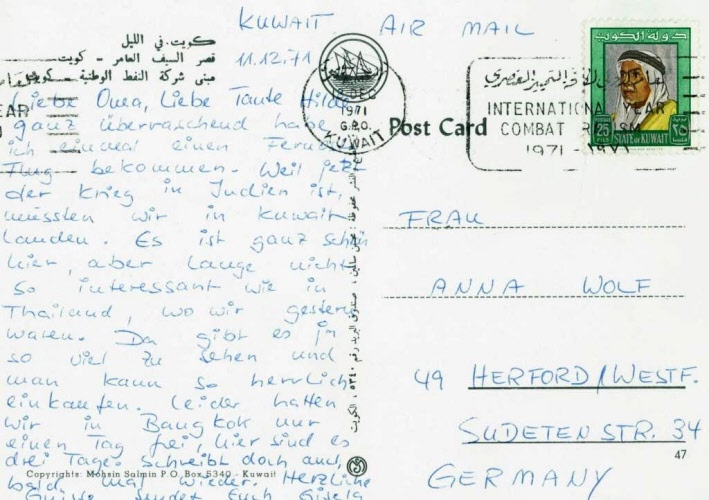 KUWAIT AIR MAIL
كويت في الليل
قصر السيف العامر - كويت
مبنى شركة النفط الوطنية - كويت
11.12.71
Liebe Oma, Liebe Tante Hilde,
ganz überraschend habe
ich einmal einen Fernost
Flug bekommen. Weil jetzt
der Krieg in Indien ist,
mussten wir in Kuwait
landen. Es ist ganz schön
hier, aber lange nicht
so interessant wie in
Thailand, wo wir gestern
waren. Da gibt es ja
so viel zu sehen und
man kann so herrlich
einkaufen. Leider hatten
wir in Bangkok nur
einen Tag frei, hier sind es
drei Tage. Schreibt doch auch
bald mal wieder. Herzliche
Grüsse sendet Euch Gisela
Copyrights: Mohsin Salmin P.O. Box 5340 - Kuwait
DEC
1971
G.P.O.
KUWAIT
Post Card
INTERNATIONAL YEAR
COMBAT RACISM
1971 - ١٩٧١
دولة الكويت
25
FILS
٢٥
STATE OF KUWAIT
FRAU
ANNA WOLF
49 HERFORD/WESTF.
SUDETENSTR. 34
47
GERMANY